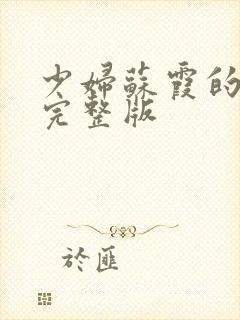 少婦蘇霞的
完整版
於匪